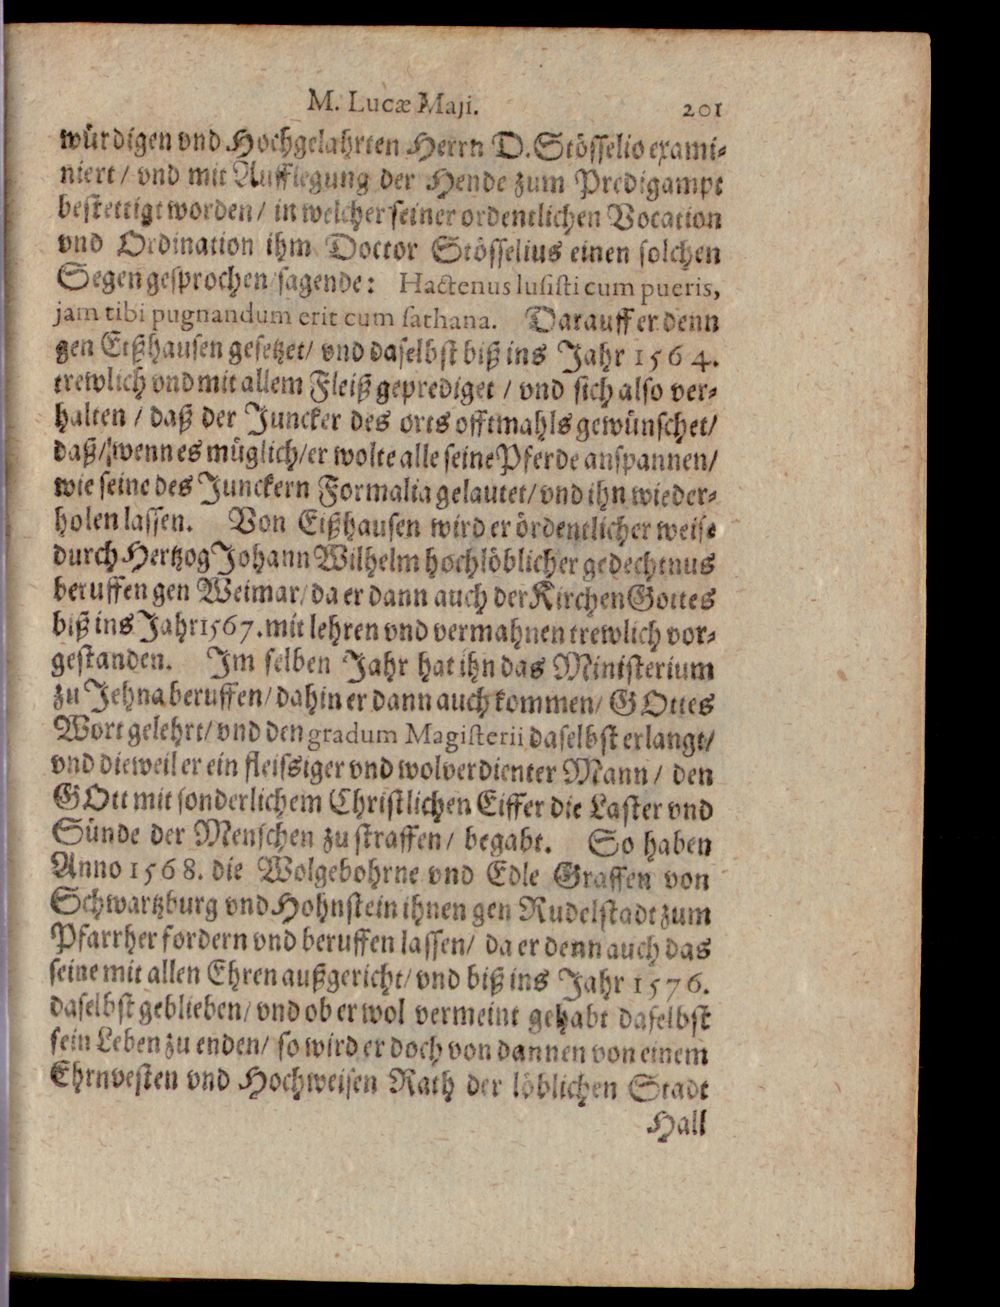 M. Lucæ Maji. 201
würdigen vnd Hochgelahrten Herrn D. Stösselio exami-
niert / vnd mit Aufflegung der Hende zum Predigampt
bestettigt worden / in welcher seiner ordentlichen Vocation
vnd Ordination ihm Doctor Stösselius einen solchen
Segen gesprochen sagende: Hactenus lusisti cum pueris,
jam tibi pugnandum erit cum sathana. Darauff er denn
gen Eißhausen gesetzet / vnd daselbst biß ins Jahr 1564.
trewlich vnd mit allem Fleiß geprediget / vnd sich also ver-
halten / daß der Juncker des orts offtmahls gewünschet /
daß / wenn es müglich / er wolte alle seine Pferde anspannen /
wie seine des Junckern Formalia gelautet / vnd ihn wieder-
holen lassen. Von Eißhausen wird er ördentlicher weise
durch Hertzog Johann Wilhelm hochlöblicher gedechtnus
beruffen gen Weimar / da er dann auch der Kirchen Gottes
biß ins Jahr 1567. mit lehren vnd vermahnen trewlich vor-
gestanden. Im selben Jahr hat ihn das Ministerium
zu Jehna beruffen / dahin er dann auch kommen / GOttes
Wort gelehrt / vnd den gradum Magisterii daselbst erlangt /
vnd dieweil er ein fleissiger vnd wolverdienter Mann / den
GOtt mit sonderlichem Christlichen Eiffer die Laster vnd
Sünde der Menschen zu straffen / begabt. So haben
Anno 1568. die Wolgebohrne vnd Edle Graffen von
Schwartzburg vnd Hohnstein ihnen gen Rudelstadt zum
Pfarrher fordern vnd beruffen lassen / da er denn auch das
seine mit allen Ehren außgericht / vnd biß ins Jahr 1576.
daselbst geblieben / vnd ob er wol vermeint gehabt daselbst
sein Leben zu enden / so wird er doch von dannen von einem
Ehrnvesten vnd Hochweisen Rath der löblichen Stadt
Hall